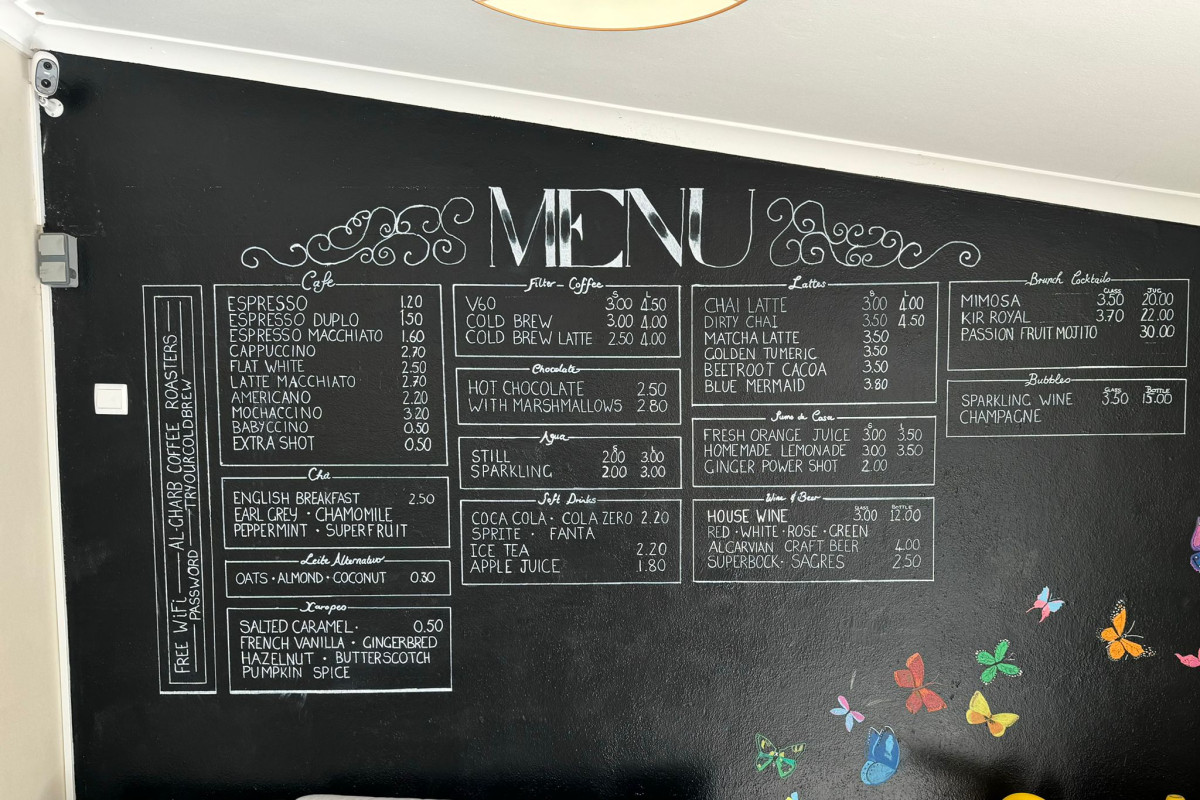 MENU
FREE WiFi — AL-GHARB COFFEE ROASTERS
PASSWORD — TRYOURCOLDBREW
Café
ESPRESSO 1.20
ESPRESSO DUPLO 1.50
ESPRESSO MACCHIATO 1.60
CAPPUCCINO 2.70
FLAT WHITE 2.50
LATTE MACCHIATO 2.70
AMERICANO 2.20
MOCHACCINO 3.20
BABYCCINO 0.50
EXTRA SHOT 0.50
Cha
ENGLISH BREAKFAST 2.50
EARL GREY • CHAMOMILE
PEPPERMINT • SUPERFRUIT
Leite Alternativo
OATS • ALMOND • COCONUT 0.30
Xaropes
SALTED CARAMEL • 0.50
FRENCH VANILLA • GINGERBRED
HAZELNUT • BUTTERSCOTCH
PUMPKIN SPICE
Filter - Coffee
S L
V60 3.00 4.50
COLD BREW 3.00 4.00
COLD BREW LATTE 2.50 4.00
Chocolate
HOT CHOCOLATE 2.50
WITH MARSHMALLOWS 2.80
Agua
S L
STILL 2.00 3.00
SPARKLING 2.00 3.00
Soft Drinks
COCA COLA • COLA ZERO 2.20
SPRITE • FANTA
ICE TEA 2.20
APPLE JUICE 1.80
Lattes
S L
CHAI LATTE 3.00 4.00
DIRTY CHAI 3.50 4.50
MATCHA LATTE 3.50
GOLDEN TUMERIC 3.50
BEETROOT CACOA 3.50
BLUE MERMAID 3.80
Sumo de Casa
S L
FRESH ORANGE JUICE 3.00 3.50
HOMEMADE LEMONADE 3.00 3.50
GINGER POWER SHOT 2.00
Wine & Beer
GLASS BOTTLE
HOUSE WINE 3.00 12.00
RED • WHITE • ROSE • GREEN
ALGARVIAN CRAFT BEER 4.00
SUPERBOCK • SAGRES 2.50
Brunch Cocktails
GLASS JUG
MIMOSA 3.50 20.00
KIR ROYAL 3.70 22.00
PASSION FRUIT MOJITO 30.00
Bubbles
GLASS BOTTLE
SPARKLING WINE 3.50 15.00
CHAMPAGNE